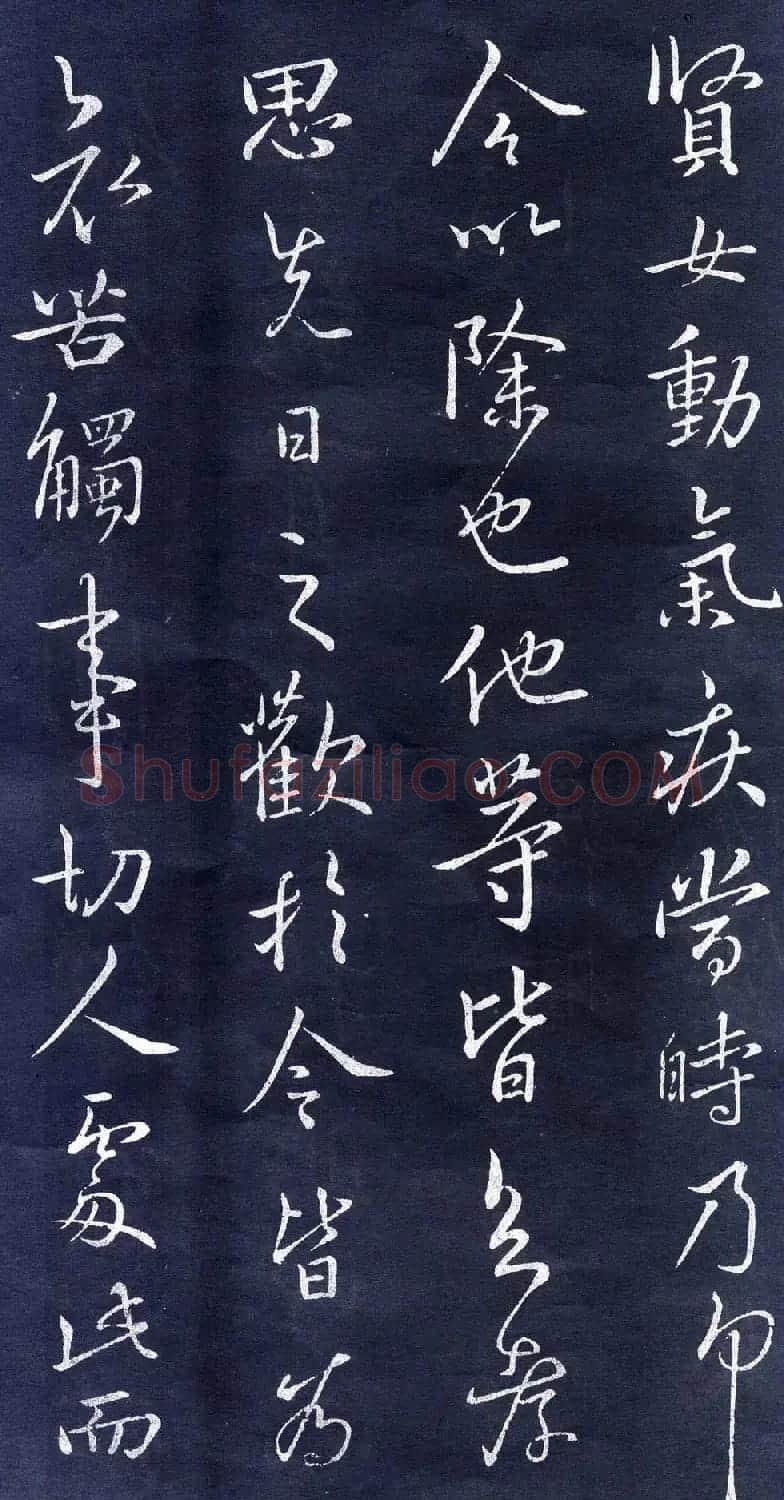 賢女動氣疾當時乃
今以除也他等皆孝
思先日之歡於今皆為
哀苦觸事切人處此而
Shufaziliao.COM